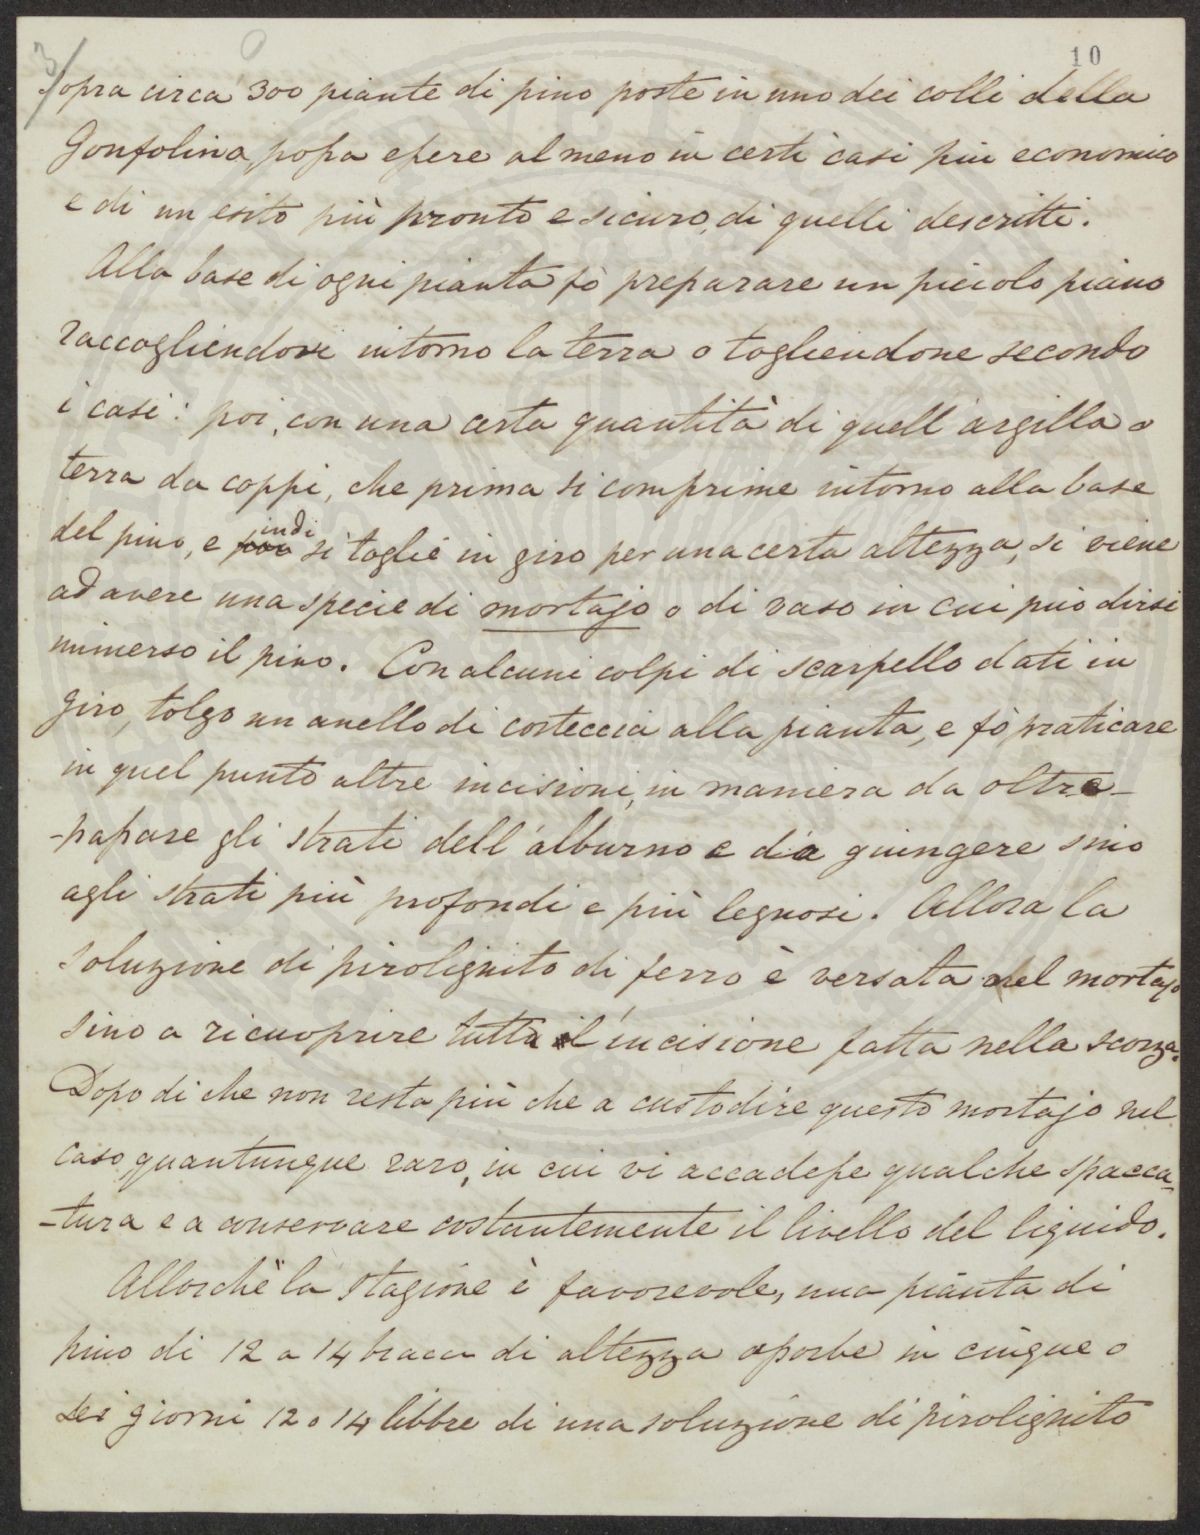 3/
10
sopra circa 300 piante di pino poste in uno dei colli della
Gonfolina, possa essere almeno in certi casi più economico
e di un esito più pronto e sicuro, di quelli descritti.
Alla base di ogni pianta fò preparare un piccolo piano
raccogliendovi intorno la terra o togliendone secondo
i casi: poi, con una certa quantità di quell'argilla o
terra da coppi, che prima si comprime intorno alla base
del pino, e indi si toglie in giro per una certa altezza, si viene
ad avere una specie di mortajo o di vaso in cui può dirsi
immerso il pino. Con alcuni colpi di scarpello dati in
giro, tolgo un anello di corteccia alla pianta, e fò praticare
in quel punto altre incisioni, in maniera da oltre-
-passare gli strati dell'alburno e da giungere sino
agli strati più profondi e più legnosi. Allora la
soluzione di pirolignito di ferro è versata nel mortajo
sino a ricuoprire tutta l'incisione fatta nella scorza.
Dopo di che non resta più che a custodire questo mortajo nel
caso, quantunque raro, in cui vi accadesse qualche spacca-
-tura e a conservare costantemente il livello del liquido.
Allorchè la stagione è favorevole, una pianta di
pino di 12 a 14 bracci di altezza assorbe in cinque o
sei giorni 12 o 14 libbre di una soluzione di pirolignito